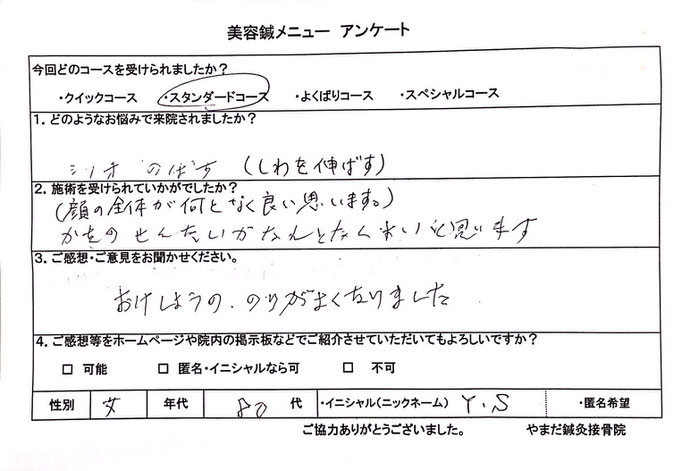 美容鍼メニュー アンケート
今回どのコースを受けられましたか？
・クイックコース ・スタンダードコース ・よくばりコース ・スペシャルコース
1. どのようなお悩みで来院されましたか？
シワオ のばす (しわを伸ばす)
2. 施術を受けられていかがでしたか？
(顔の全体が何となく良い思います。)
かをのせんたいがなんとなくよいと思います
3. ご感想・ご意見をお聞かせください。
おけしょうの、のりがよくなりました
4. ご感想等をホームページや院内の掲示板などでご紹介させていただいてもよろしいですか？
□ 可能 □ 匿名・イニシャルなら可 □ 不可
性別 女 年代 80 代 ・イニシャル(ニックネーム) Y.S ・匿名希望
ご協力ありがとうございました。 やまだ鍼灸接骨院